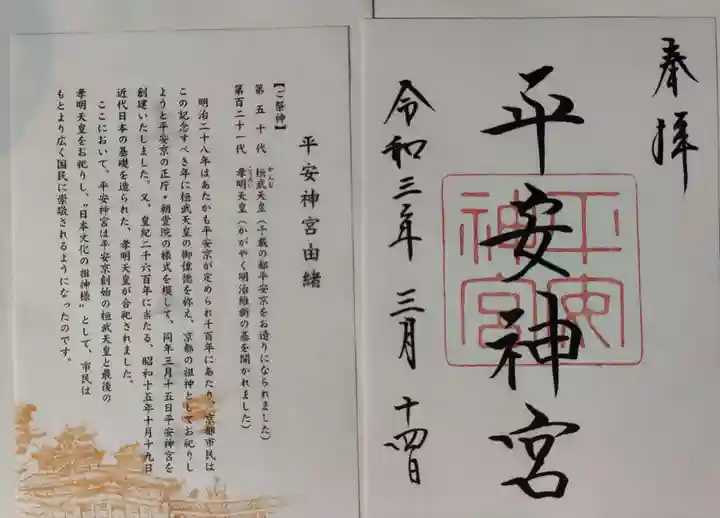 奉拝
平安神宮
平安神宮
令和三年三月十四日
平安神宮由緒
【ご祭神】
第五十代 桓武天皇(千載の都平安京をお造りになられました)
かんむ
第百二十一代 孝明天皇(かがやく明治維新の基を開かれました)
こうめい
明治二十八年はあたかも平安京が定められ千百年にあたり、京都市民は
この記念すべき年に桓武天皇の御偉徳を称え、京都の祖神としてお祀りし
ようと平安京の正庁・朝堂院の様式を模して、同年三月十五日平安神宮を
創建いたしました。又、皇紀二千六百年に当たる、昭和十五年十月十九日
近代日本の基礎を造られた、孝明天皇が合祀されました。
ここにおいて、平安神宮は平安京創始の桓武天皇と最後の
孝明天皇をお祀りし、"日本文化の祖神様"として、市民は
もとより広く国民に崇敬されるようになったのです。